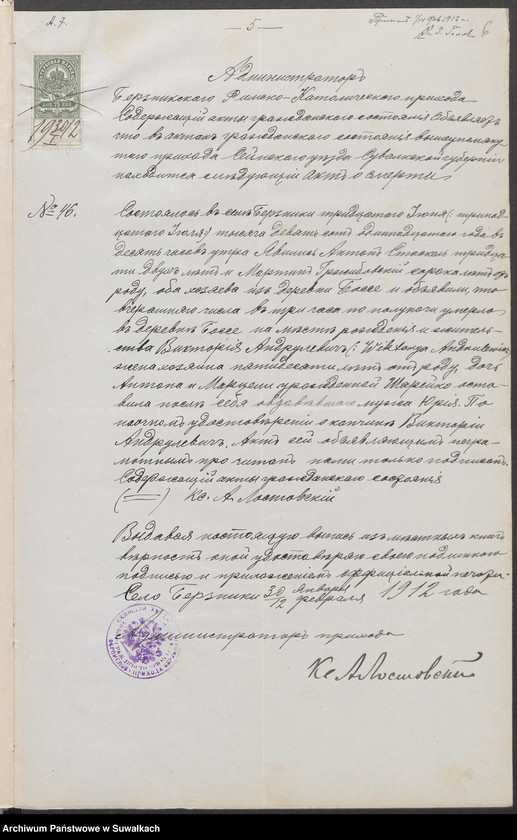 А. 7.
— 5 —
6
1930/I 2
Администраторъ
Берзникскаго Римско-Католическаго прихода
Содержащій акты гражданскаго состоянія объявляетъ
что въ актахъ гражданскаго состоянія вышеупомяну-
таго прихода Сейнскаго уѣзда Сувалкской губерніи
находится слѣдующій актъ о смерти
№ 46.
Состоялось въ селѣ Берзники тридцатаго Іюня (: тринад-
цатаго Іюля) тысяча девятьсотъ одиннадцатаго года въ
десять часовъ утра. Явились Антонъ тридца-
ти двухъ лѣтъ и Мартинъ сорока лѣтъ отъ
роду, оба хозяева изъ деревни Боссе и объявили, что
вчерашняго числа въ три часа по полуночи умерла
въ деревнѣ Боссе на мѣстѣ рожденія и житель-
ства Викторія Андрулевичъ (: Wiktorya Andrulewicz
жена хозяина пятидесяти лѣтъ отъ роду, дочь
Антона и Марцели урожденной Жарейко оста-
вила послѣ себя овдовѣвшаго мужа Юрія. По
наочномъ удостовѣреніи о кончинѣ Викторіи
Андрулевичъ. Актъ сей объявляющимъ негра-
мотнымъ прочитанъ нами только подписанъ
Содержащій акты гражданскаго состоянія
(—) Кс. А. Лостовскій
Выдавая настоящую выпись изъ мѣстныхъ книгъ
вѣрность оной удостовѣряю своею подлинною
подписью и приложеніемъ оффиціальной печати.
Село Берзники 30/12 Января/Февраля 1912 года
Администраторъ прихода
Кс. А. Лостовскій
Archiwum Państwowe w Suwałkach